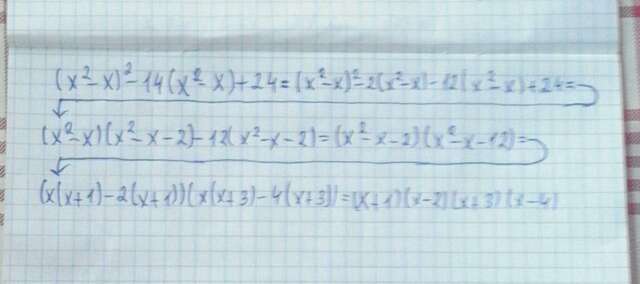 (x²-x)²-14(x²-x)+24=(x²-x)²-2(x²-x)-12(x²-x)+24=
(x²-x)(x²-x-2)-12(x²-x-2)=(x²-x-2)(x²-x-12)=
(x(x+1)-2(x+1))(x(x+3)-4(x+3))=(x+1)(x-2)(x+3)(x-4)